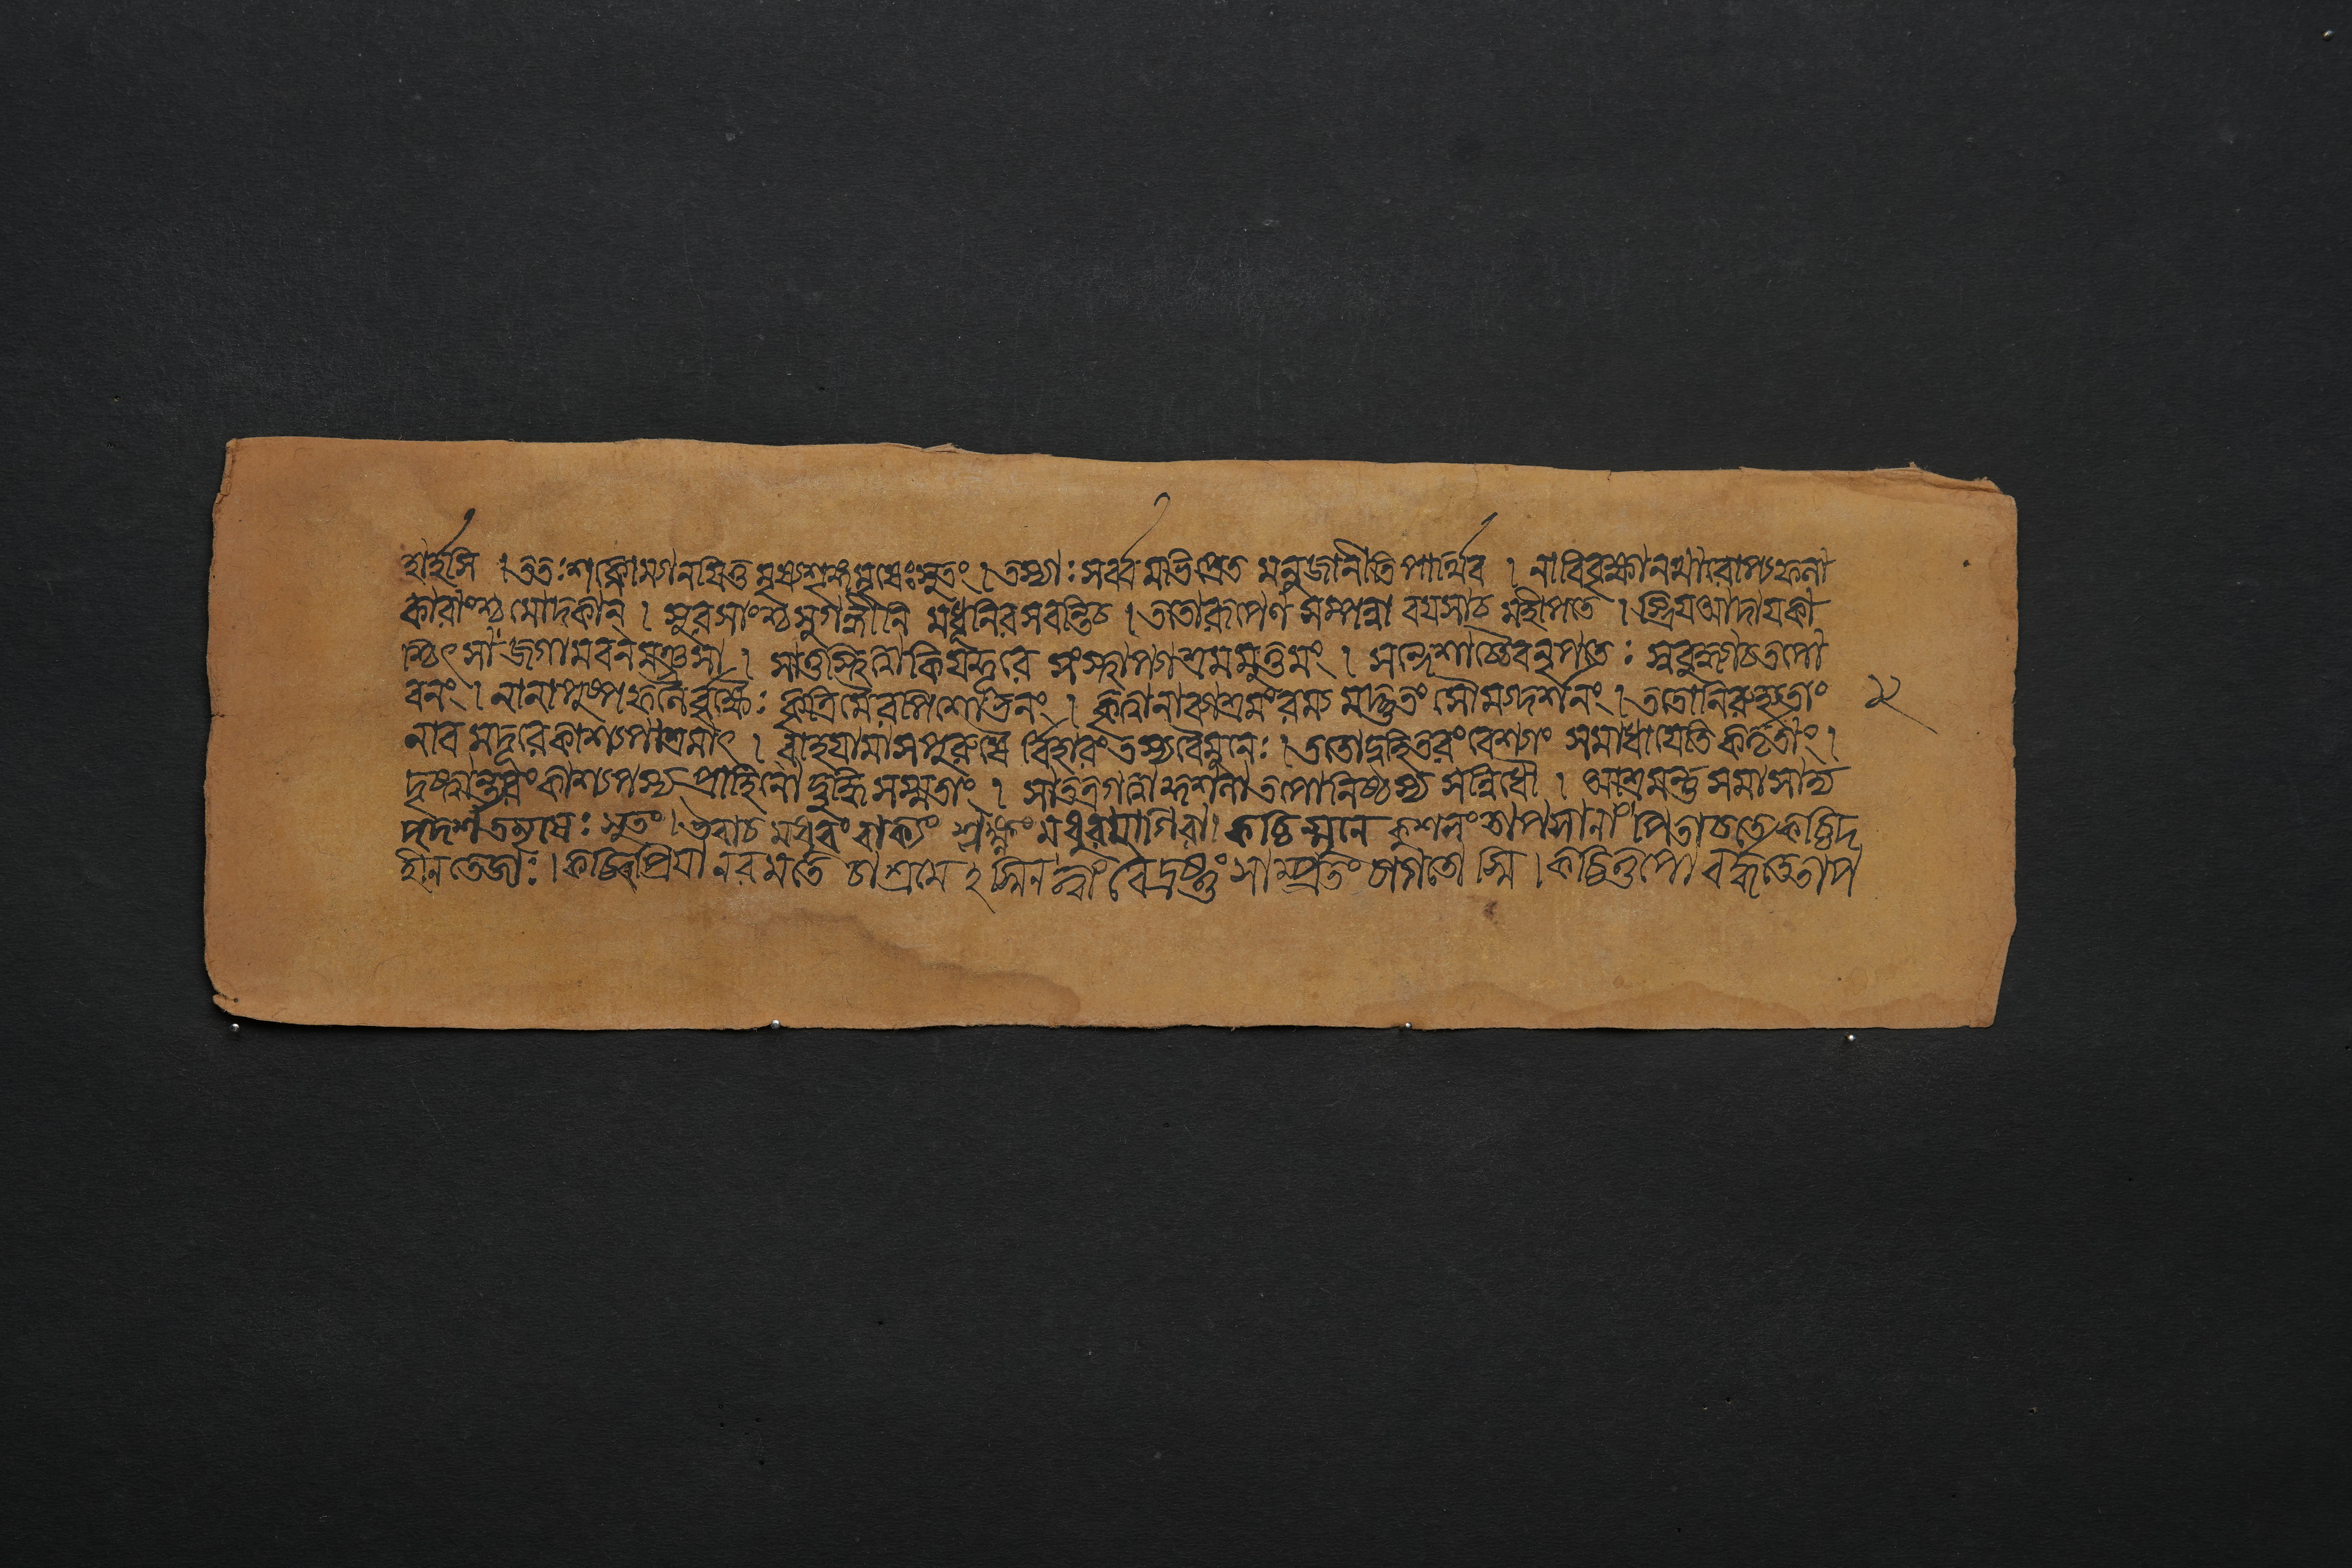 হার্হসি । ততঃ শক্ষ্যাম্যানয়িতুমৃষ্যশৃঙ্গমৃষেঃ সুতং । তস্যাঃ সর্ব্বমভিপ্রেতমনুজানীহি পার্থিব । নাবি বৃক্ষানথারোপ্য ফলা
কারাংশ্চ মোদকান্ । সুরসাংশ্চ সুগন্ধীনি মধূনি রসবন্তি চ । ততো রূপেণ সম্পন্না বয়সা চ মহীপতে । স্ত্রিয় আদায় কা
শ্চিৎ সা জগাম বনমঞ্জসা । সা তু কিয়দ্দূরে সংস্থাপ্যাশ্রমমুত্তমং । সন্দেশাচ্চৈব নৃপতেঃ স্ববুদ্ধ্যা চ তপো
বনং । নানাপুষ্পফলৈর্বৃক্ষৈঃ কৃত্রিমৈরুপশোভিতং । কৃত্বা নাব্যাশ্রমং রম্যমদ্ভুতং সৌম্যদর্শনং । ততো নিরুহ্য তাং
নাবমদূরে কাশ্যপাশ্রমাৎ । বাহয়ামাস পুরুষৈর্বিহারং তস্য বৈ মুনেঃ । ততো দুহিতরং বেশ্যাং সমাধায়েতিকর্তৃতাং ।
দৃষ্ট্বান্তরং কাশ্যপস্য প্রাহিণোদ্বুদ্ধিসম্মতাং । সা তত্র গত্বা তপোনিষ্ঠস্য সন্নিধৌ । আশ্রমন্তু সমাসাদ্য
দদর্শ তমৃষেঃ সুতং । উবাচ মধুরং বাক্যং শ্লক্ষ্ণং মধুরয়া গিরা । কচ্চিন্মুনে কুশলং তাপসানাং পিতা চ তে কচ্চিদ
হীনতেজাঃ । রমতে চাশ্রমেঽস্মিন্ ত্বাং বৈ দ্রষ্টুং সাম্প্রতং আগতোস্মি । কচ্চিত্তপো বর্দ্ধতে তাপ